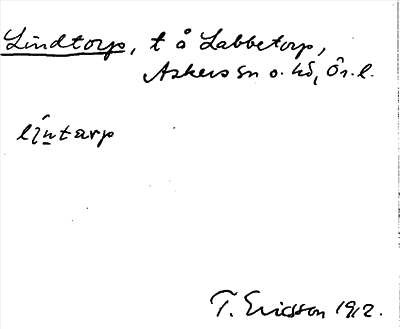 Lindtorp, t å Labbetorp,
Askers sn o. hd, Ör. l.
líntarp
T. Ericsson 1912.